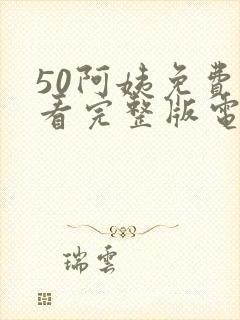 50阿姨免費
看完整版電
瑞雲